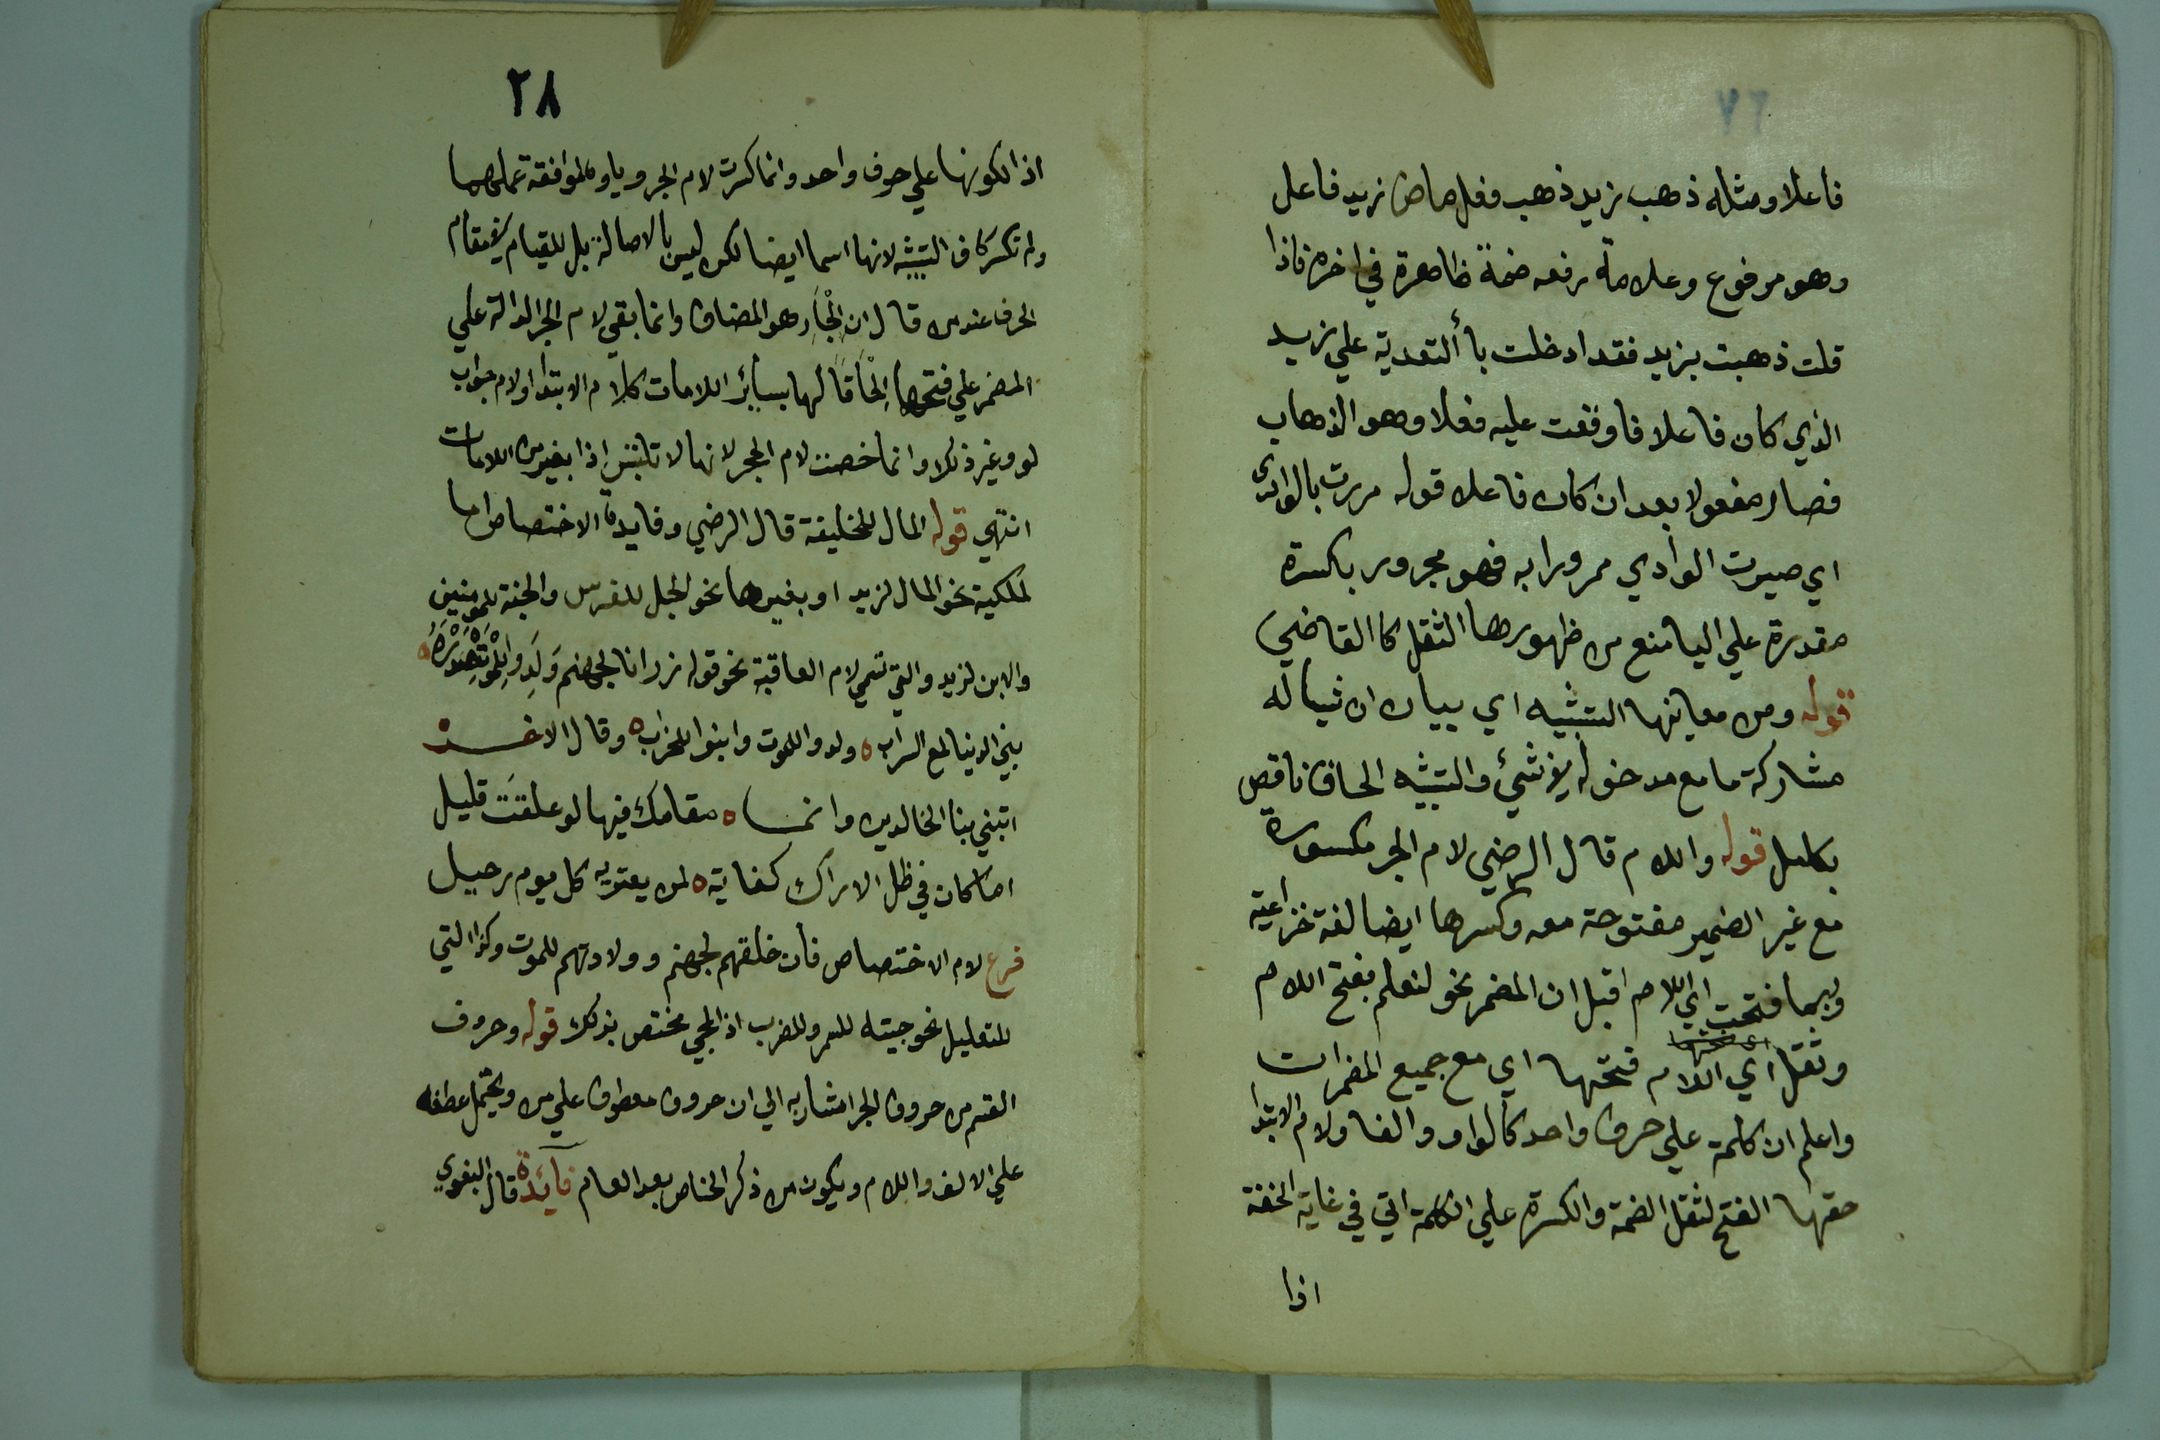 فاعلا ومثله ذهب بزيد ذهب فعل ماض زيد فاعل
وهو مرفوع وعلامة رفعه ضمة ظاهرة في اخره فاذا
قلت ذهبت بزيد فقد ادخلت باء التعدية علي زيد
الذي كان فاعلا فاوقعت عليه فعلا وهو الذهاب
فصار مفعولا بعد ان كان فاعلا قوله مررت بالوادي
اي صيرت الوادي ممرورا به فهو مجرور بكسرة
مقدرة علي اليا منع من ظهورها الثقل كالقاضي
قوله ومن معانيها التشبيه اي بيان ان شيا له
مشاركة ما مع مدخوله في شئ والتشبيه الحاق ناقص
بكامل قوله واللام قال الرضي لام الجر مكسورة
مع غير الضمير مفتوحة معه وكسرها ايضا لغة خزاعية
وربما فتحت اي اللام قبل ان المضمر نحو لنعلم بفتح اللام
ونقل اي اللام فتحها اي مع جميع المضمرات
واعلم ان كلمة علي حرف واحد كالواو والفا ولام الابتدا
حقها الفتح لثقل الضمة والكسرة علي الكلمة التي في غاية الخفة
اذا
٢٨
اذا لكونها علي حرف واحد وانما كسرت لام الجر وباوه لموافقة عملهما
ولم تكسر كاف التشبيه لانها اسما ايضا لكن ليس بالاصالة بل للقيام في مقام
الحرف عند من قال ان الجار هو المضاف وانما بقي لام الجر الدالة علي
المضمر علي فتحها الحاقا لها بسائر اللامات كلام الابتدا ولام جواب
لو وغير ذلك وانما خصت لام الجر لانها لا تلتبس اذا بغير من اللامات
انتهي قوله المال للخليفة قال الرضي وفايدة الاختصاص اما
لملكية نحو المال لزيد او بغيرها نحو الجل للفرس والجنة للمؤمنين
والابن لزيد والتي تسمي لام العاقبة نحو قوله ذرانا لجهنم ولدوا للموت
بني الدنيا لمع السراب ه ولدوا للموت وابنوا للخراب ه وقال الاخر
اتبني بنا الخالدين وانما ه مقامك فيها لو علقت قليل
اما كان في ظل الاراك كفاية ه لمن يعتريه كل يوم رحيل
فرع لام الاختصاص فان خلقهم لجهنم وولادتهم للموت وكذا التي
للتعليل نحو جيته للسمر وللضرب اذ المجي مختص بذلك قوله وحروف
القسم من حروف الجر اشار به الي ان حروف معطوف علي من ويحتمل عطفه
علي الالف واللام ويكون من ذكر الخاص بعد العام فائدة قال البغوي